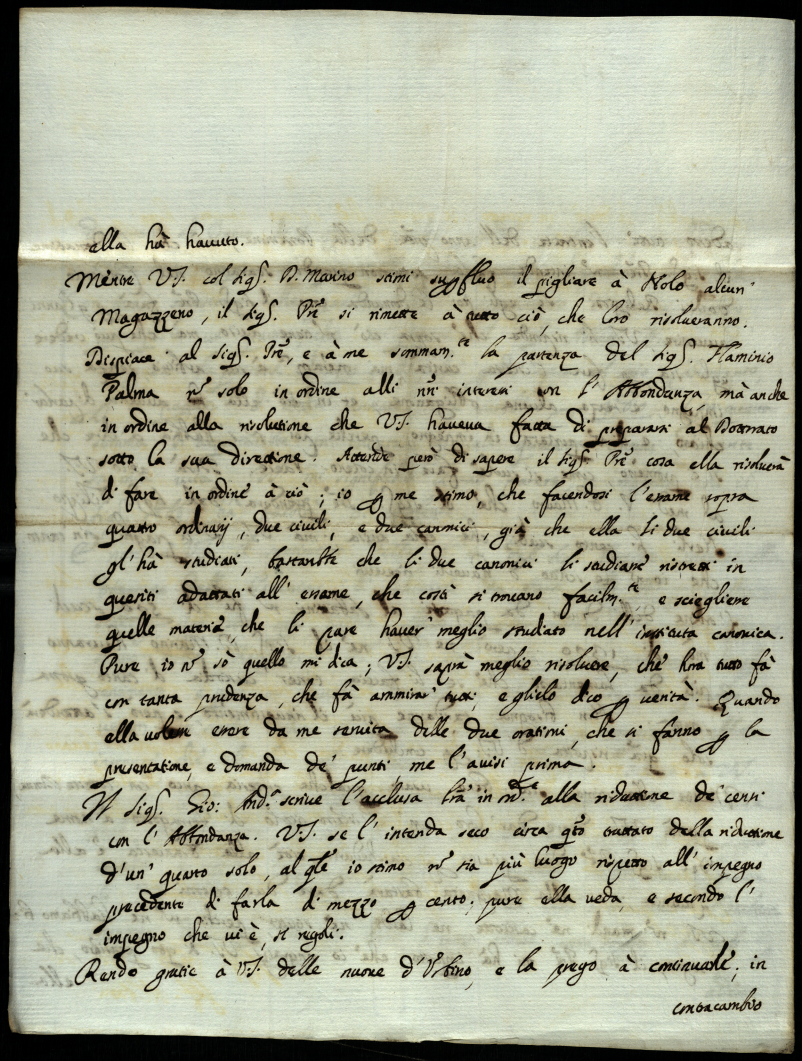 ella hà havuto.
Mentre V.S. col Sigr. D. Marino stimi suꝑfluo il pigliare à Nolo alcun'
Magazzeno, il Sigr. Prē si rimette à tutto ciò, che loro risolveranno.
Dispiace al Sigr. Prē, e à me sommam.te la partenza del Sigr. Flaminio
Palma nō solo in ordine alli nr̄i interessi con l'Abbondanza, mà anche
in ordine alla risolutione che V.S. haveva fatta di prepararsi al Dottorato
sotto la sua direttione. Attende però di sapere il Sigr. Prē cosa ella risolverà
di fare in ordine à ciò; io ꝑ me stimo, che facendosi l'essame sopra
quattro ordinarij, due civili, e due canonici, già che ella li due civili
gl'hà studiati, che li due canonici li studiasse ristretti in
quesiti adattati all'essame, che costì si trovano facilm.te, e sciegliere
quelle materie, che li pare haver meglio studiato nell'instituta canonica.
Pure io nō sò quello mi dica; V.S. saprà meglio risolvere, che hora tutto fà
con tanta prudenza, che fà ammirar tutti, e glielo dico ꝑ verità. Quando
ella volesse essere da me servita delle due orationi, che si fanno ꝑ la
presentatione, e domanda de' punti, me l'avisi prima.
Il Sigr. Gio: And.a scrive l'acclusa lrā in ord.e alla riduttione de' censi
con l'Abbondanza. V.S. se l'intenda seco circa qto trattato della riduttione
d'un' quarto solo, al qle io stimo nō sia più luogo rispetto all'impegno
precedente di farla di mezzo ꝑ cento; pure ella veda, e secondo l'
impegno che vi è, si regoli.
Rendo gratie à V.S. delle nuove d'Urbino, e la prego à continuarle, in
contracambio